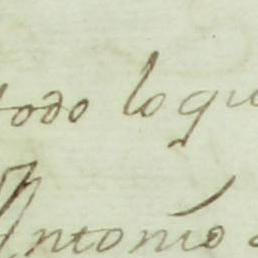 todo lo qu
Antonio